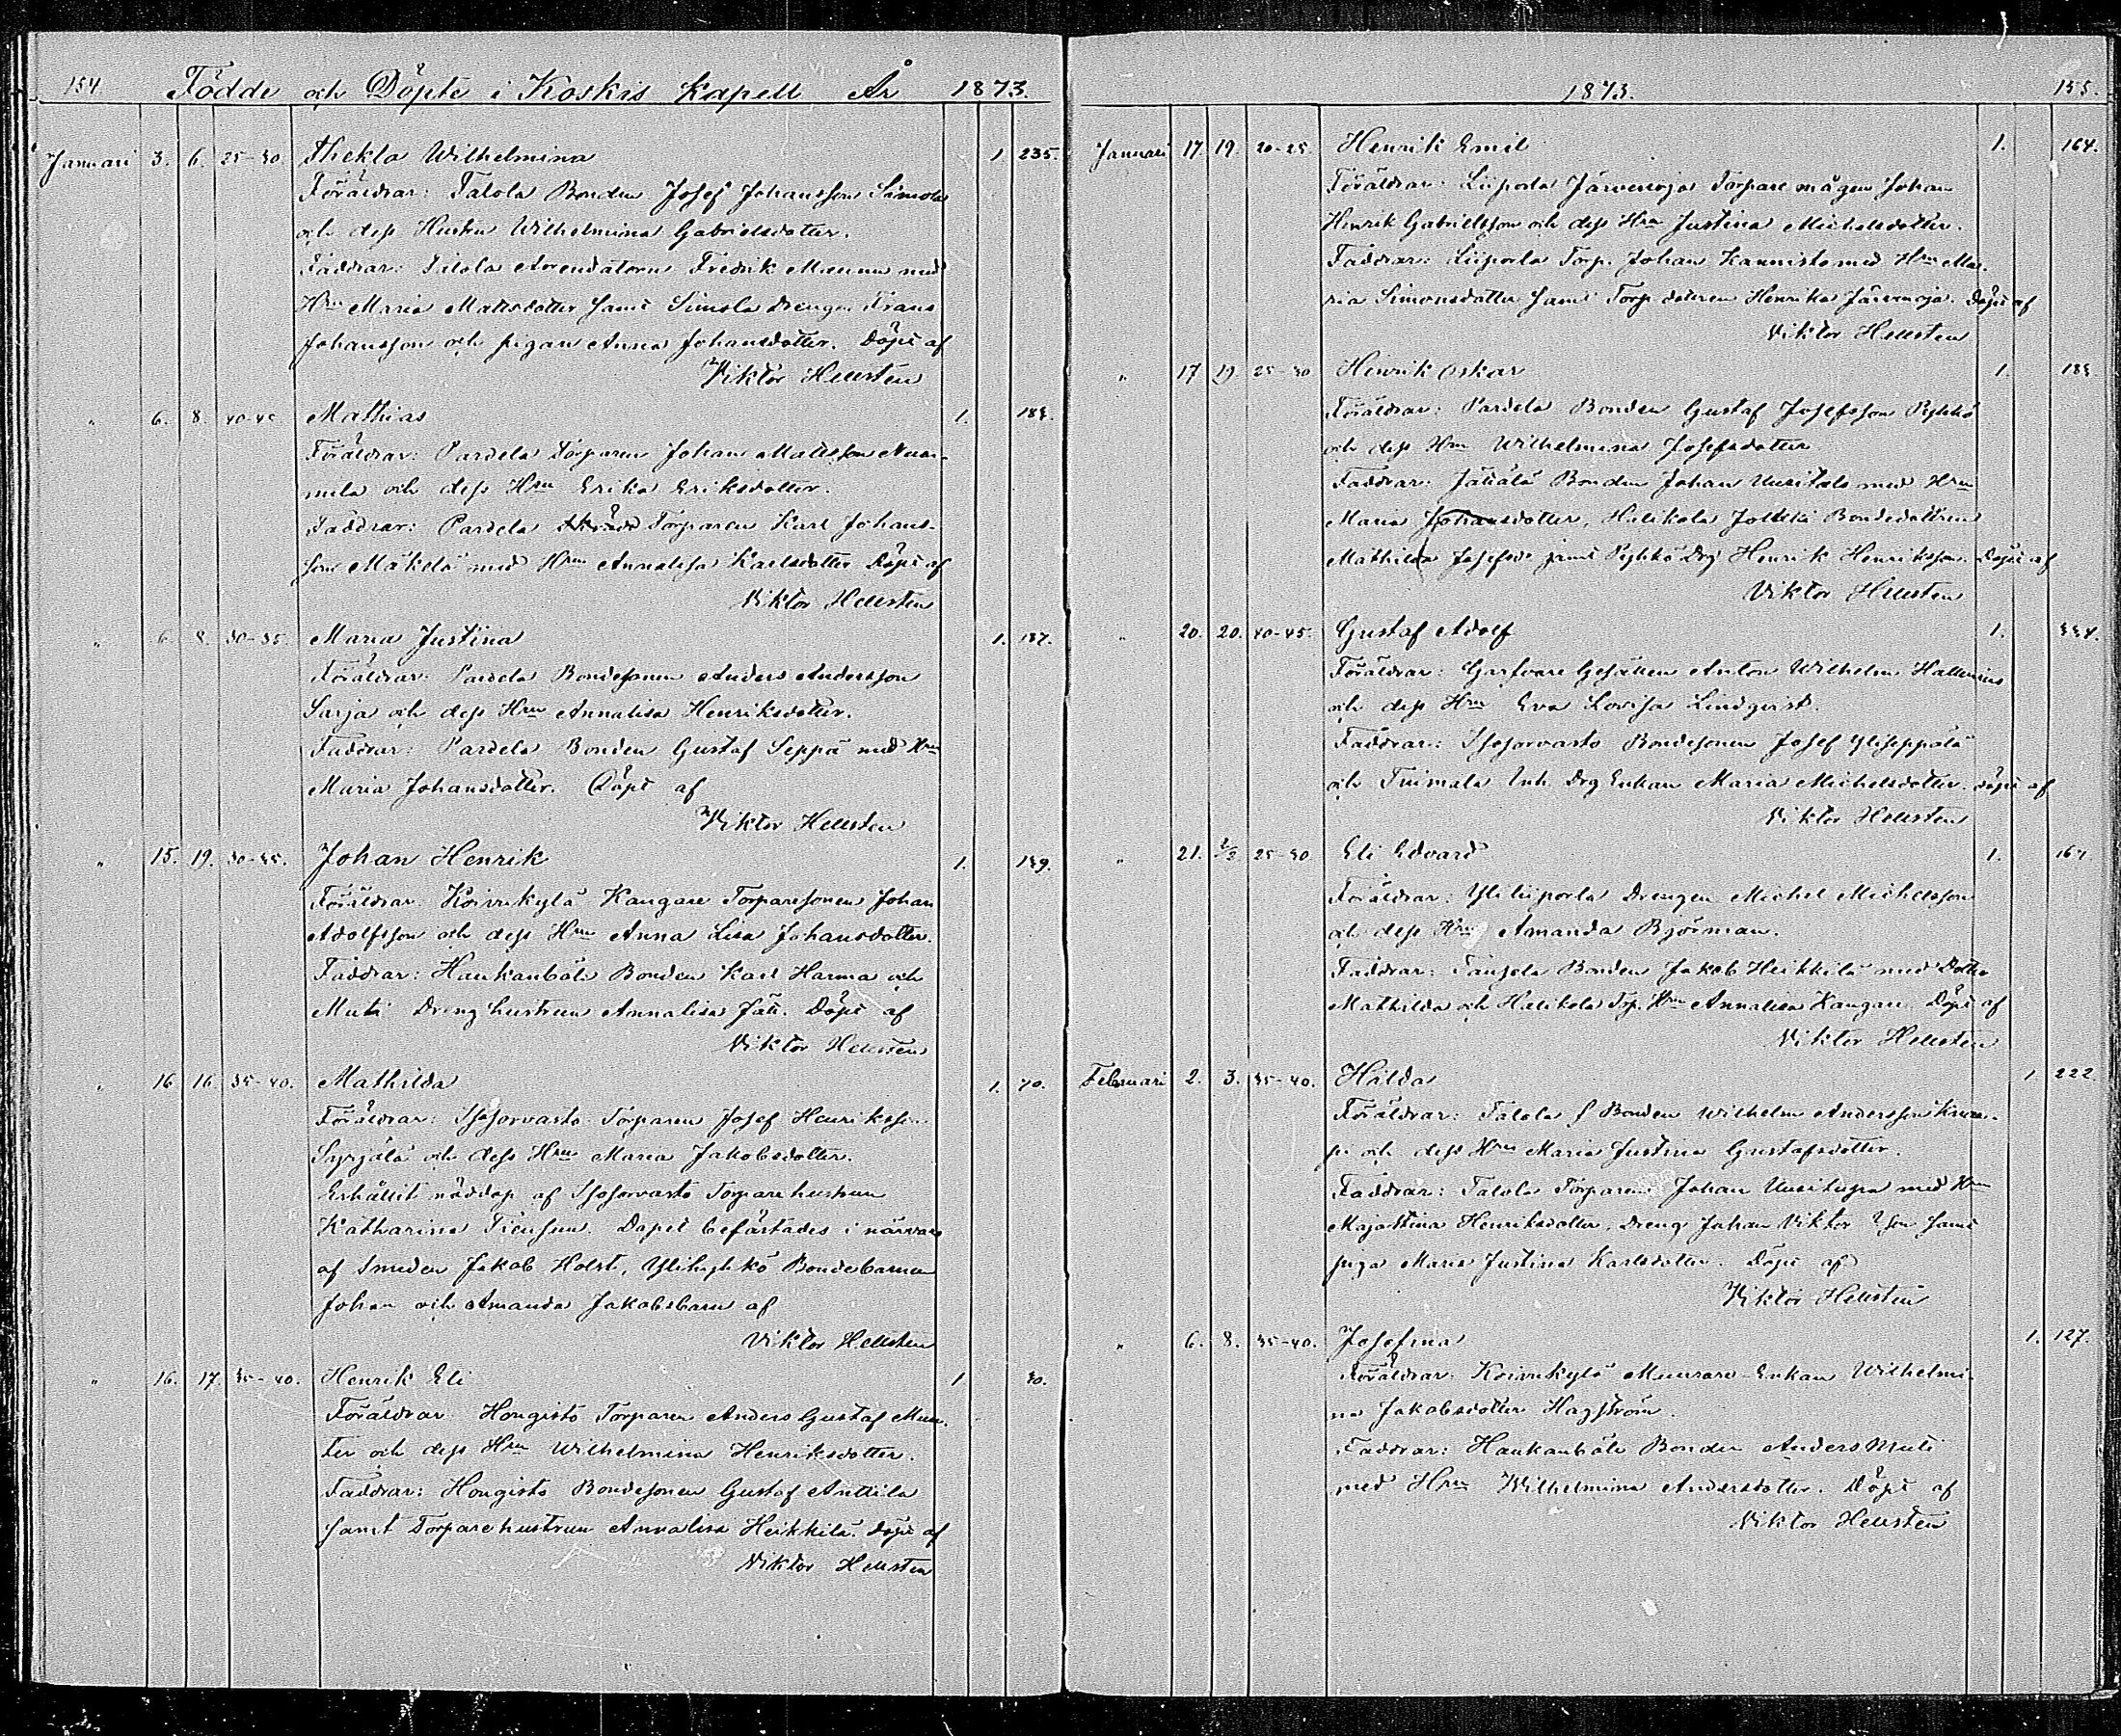 154 Födde och Döpte i Koskis Kapell År 1873.
Januari 3. 6. 25-30. Thekla Wilhelmina 1 235.
Föräldrar: Talola Bonden Josef Johansson Simola
och dess Hustru Wilhelmina Gabrielsdotter.
Faddrar: Talola Arrendatorn Fredrik Maunu med
Hru Maria Mattsdotter samt Simola drengen Frans
Johansson och pigan Anna Johansdotter. Döpt af
Viktor Hellsten
" 6. 8. 40-45. Mathias 1. 188.
Föräldrar: Pardela Torparen Johan Mattsson Num-
mela och dess Hru Erika Eriksdotter.
Faddrar: Pardela Torparen Karl Johans-
son Mäkelä med Hru Annalisa Karlsdotter Döpt af
Viktor Hellsten
" 6. 8. 30-35. Maria Justina 1. 187.
Föräldrar: Pardela Bondesonen Anders Andersson
Sarja och dess Hru Annalisa Henriksdotter.
Faddrar: Pardela Bonden Gustaf Seppä med Hru
Maria Johansdotter. Döpt af
Viktor Hellsten
" 15. 19. 30-35. Johan Henrik 1. 139.
Föräldrar: Koivukylä Kangare Torparesonen Johan
Adolfsson och dess Hru Anna Lisa Johansdotter.
Faddrar: Haukanbäli Bonden Karl Harma och
Muti Drenghustrun Annalisa Jäti. Döpt af
Viktor Hellsten
" 16. 16. 35-40. Mathilda 1. 70.
Föräldrar: Isosorvasto Torparen Josef Henriksson
Syrjälä och dess Hru Maria Jakobsdotter.
Erhållit nöddop af Isosorvasto Torparehustrun
Katharina. Dopet befästades i närvaro
af Smeden Jakob Holst, Bondebarnen
Johan och Amanda Jakobsbarn af
Viktor Hellsten
" 16. 17. 35-40. Henrik Eli 1. 30.
Föräldrar: Hongisto Torparen Anders Gustaf Mun-
ter och dess Hru Wilhelmina Henriksdotter.
Faddrar: Hongisto Bondesonen Gustaf Anttila
samt Torparehustrun Annalisa Heikkilä. Döpt af
Viktor Hellsten
1873. 155.
Januari 17. 19. 20-25. Henrik Emil 1. 164.
Föräldrar: Liiporla Järvenoja Torparemågen Johan
Henrik Gabrielsson och dess Hru Justina Michelsdotter.
Faddrar: Liiporla Torp. Johan Kannisto med Hru Ma-
ria Simonsdotter samt Torp dottren Henrika Järvenoja. Döpt af
Viktor Hellsten
" 17 19. 25-30 Henrik Oskar 1. 188.
Föräldrar: Pardela Bonden Gustaf Josefsson Pyhkö
och dess Hru Wilhelmina Josefsdotter
Faddrar: Bonden Johan Uusitalo med Hru
Maria Johansdotter, Halikola Bondedottren
Mathilda samt Drg Henrik Henriksson. Döpt af
Viktor Hellsten
" 20. 20. 40-45. Gustaf Adolf 1. 334.
Föräldrar: Garfvare Gesällen Anton Wilhelm Hallenius
och dess Hru Eva Lovisa Lindqvist.
Faddrar: Isosorvasto Bondesonen Josef Yliseppälä
och Tuimala Inh. Drg Enkan Maria Michelsdotter. döpt af
Viktor Hellsten
" 21. 2/2 25-30 Eli Edvard 1. 167
Föräldrar: Yliliiporla Drengen Michel Michelsson
och dess Hru Amanda Björman.
Faddrar: Tansela Bonden Jakob Heikkilä med Dotter
Mathilda och Halikola Tp. Hru Annalisa Kangare Döpt af
Viktor Hellsten
Februari 2. 3. 35-40. Hilda 1. 222.
Föräldrar: Talola f Bonden Wilhelm Andersson
och dess Hru Maria Justina Gustafsdotter.
Faddrar: Talola Torparen Johan Uusitupa med Hru
Majastina Henriksdotter, Dreng Johan Viktor samt
piga Maria Justina Karlsdotter. Döpt af
Viktor Hellsten
" 6. 8. 35-40. Josefina 1. 127.
Föräldrar: Koivukylä Murare-Enkan Wilhelmi-
na Jakobsdotter Hagström.
Faddrar: Haukanbäli Bonden Anders Muti
med Hru Wilhelmina Andersdotter. Döpt af
Viktor Hellsten